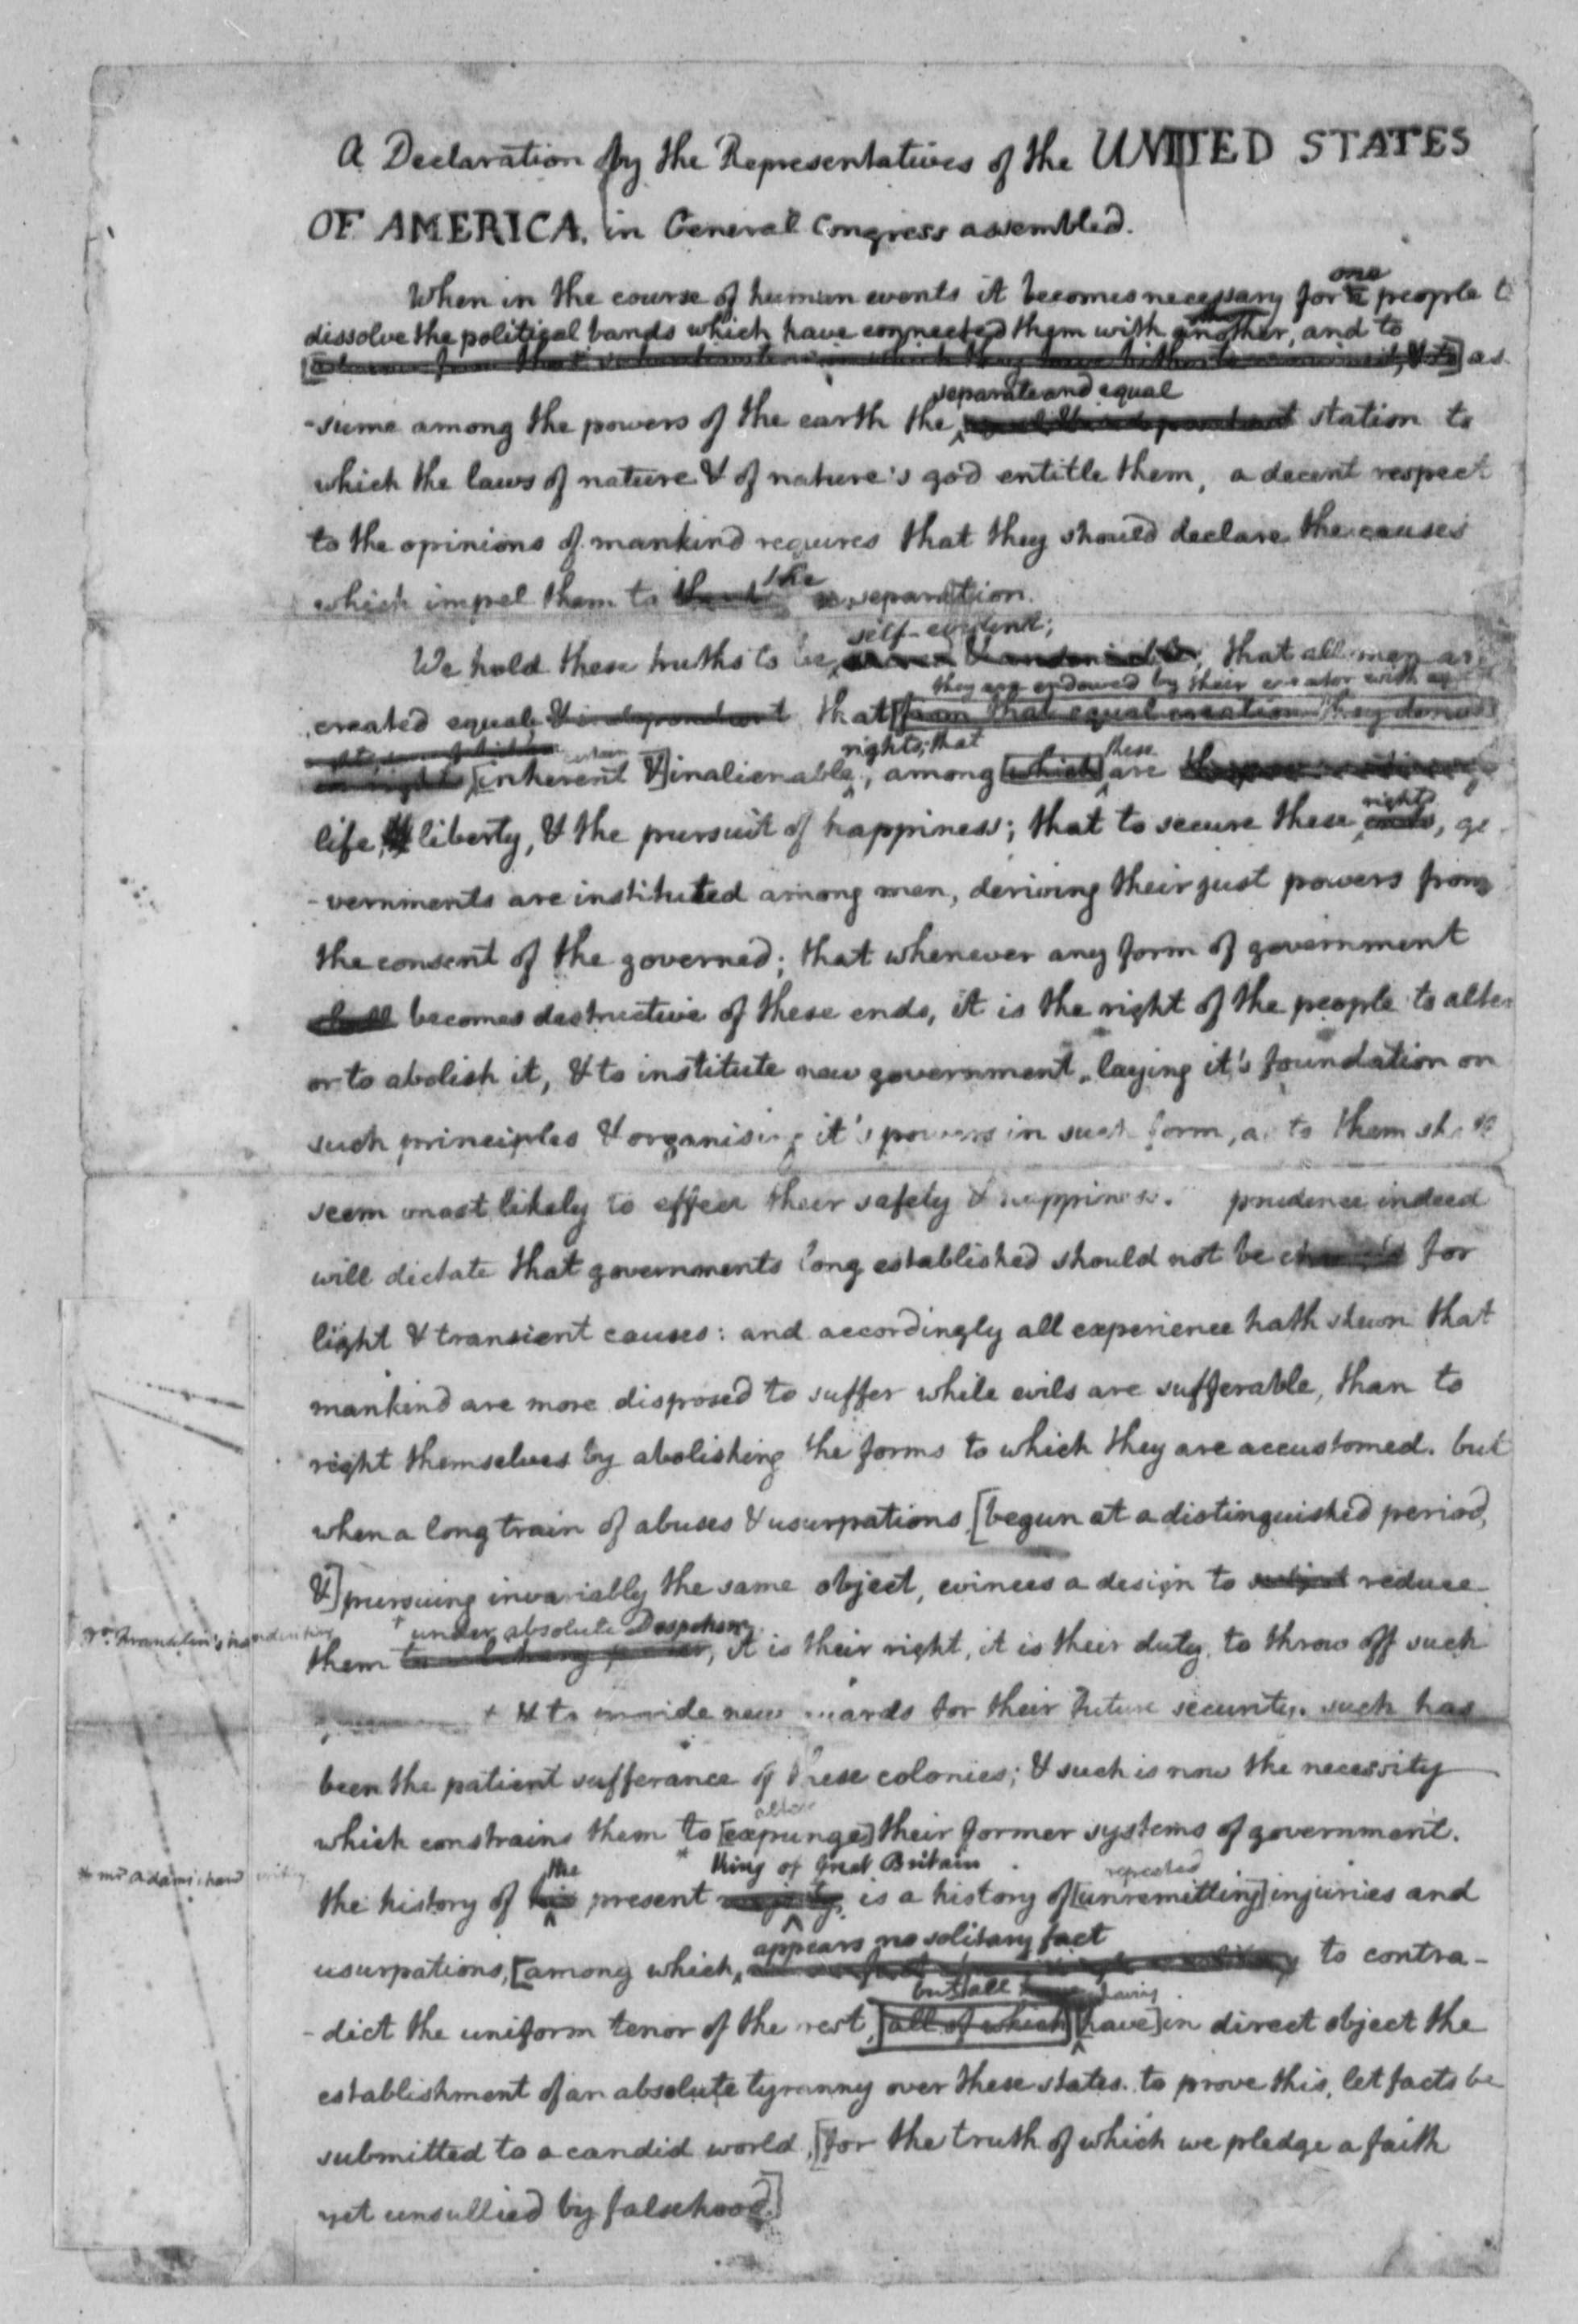 A Declaration by the Representatives of the UNITED STATES
OF AMERICA, in General Congress assembled.
one
When in the course of human events it becomes necessary for a people t
dissolve the political bands which have connected them with another, and to
as
separate and equal
-sume among the powers of the earth the station to
which the laws of nature & of nature's god entitle them, a decent respect
to the opinions of mankind requires that they should declare the causes
the
which impel them to separation.
self-evident;
We hold these truths to be that all men are
they are endowed by their creator with
created equal & independent that [from that equal creation they
certain rights; that these
[inherent &] inalienable, among [which] are
rights
life, liberty, & the pursuit of happiness; that to secure these ends, go
-vernments are instituted among men, deriving their just powers from
the consent of the governed; that whenever any form of government
shall becomes destructive of these ends, it is the right of the people to alter
or to abolish it, & to institute new government, laying it's foundation on
such principles & organising it's powers in such form, as to them shall
seem most likely to effect their safety & happiness. prudence indeed
will dictate that governments long established should not be changed for
light & transient causes: and accordingly all experience hath shewn that
mankind are more disposed to suffer while evils are sufferable, than to
right themselves by abolishing the forms to which they are accustomed. but
when a long train of abuses & usurpations [begun at a distinguished period,
&] pursuing invariably the same object, evinces a design to subject reduce
Dr. Franklin's handwriting + under absolute Despotism
them to arbitrary power, it is their right, it is their duty, to throw off such
+ & to provide new guards for their future security. such has
been the patient sufferance of these colonies; & such is now the necessity
alter
which constrains them to [expunge] their former systems of government.
* mr Adams' hand writing the * King of Great Britain repeated
the history of his present majesty, is a history of [unremitting] injuries and
appears no solitary fact
usurpations, [among which, to contra-
but all having
-dict the uniform tenor of the rest, [all of which] [have] in direct object the
establishment of an absolute tyranny over these states. to prove this, let facts be
submitted to a candid world, [for the truth of which we pledge a faith
yet unsullied by falsehood.]